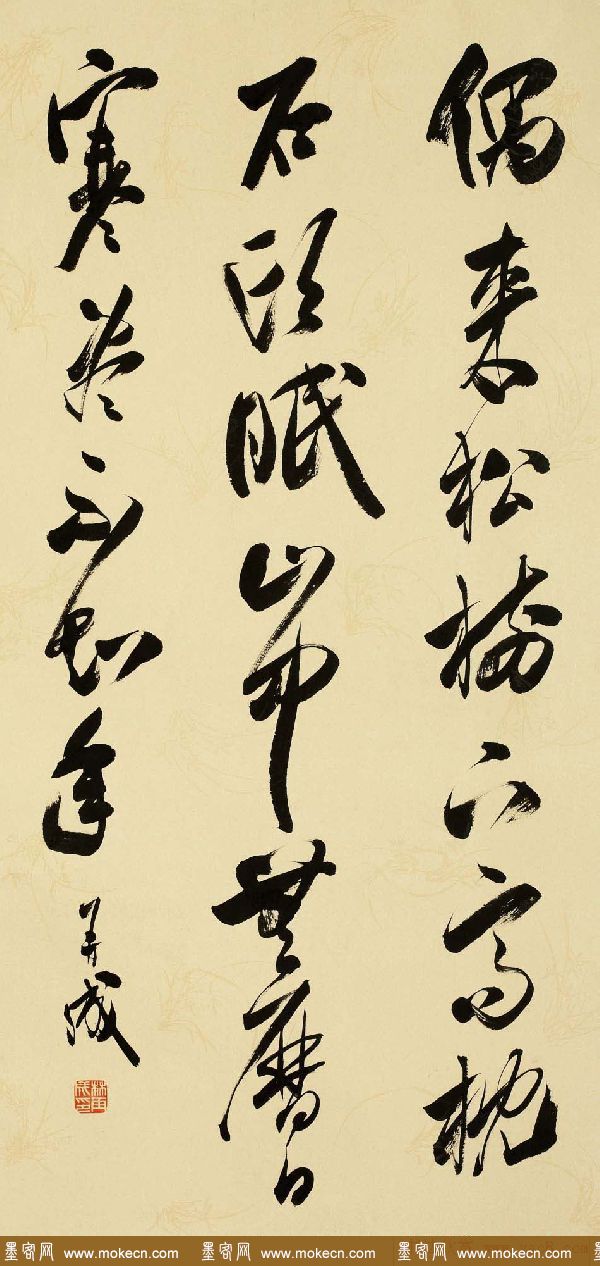 偶来松樹下高枕
石頭眠山中無曆日
寒盡不知年
墨客网 www.mokecn.com 墨客网 www.mokecn.com 墨客网 www.mokecn.com